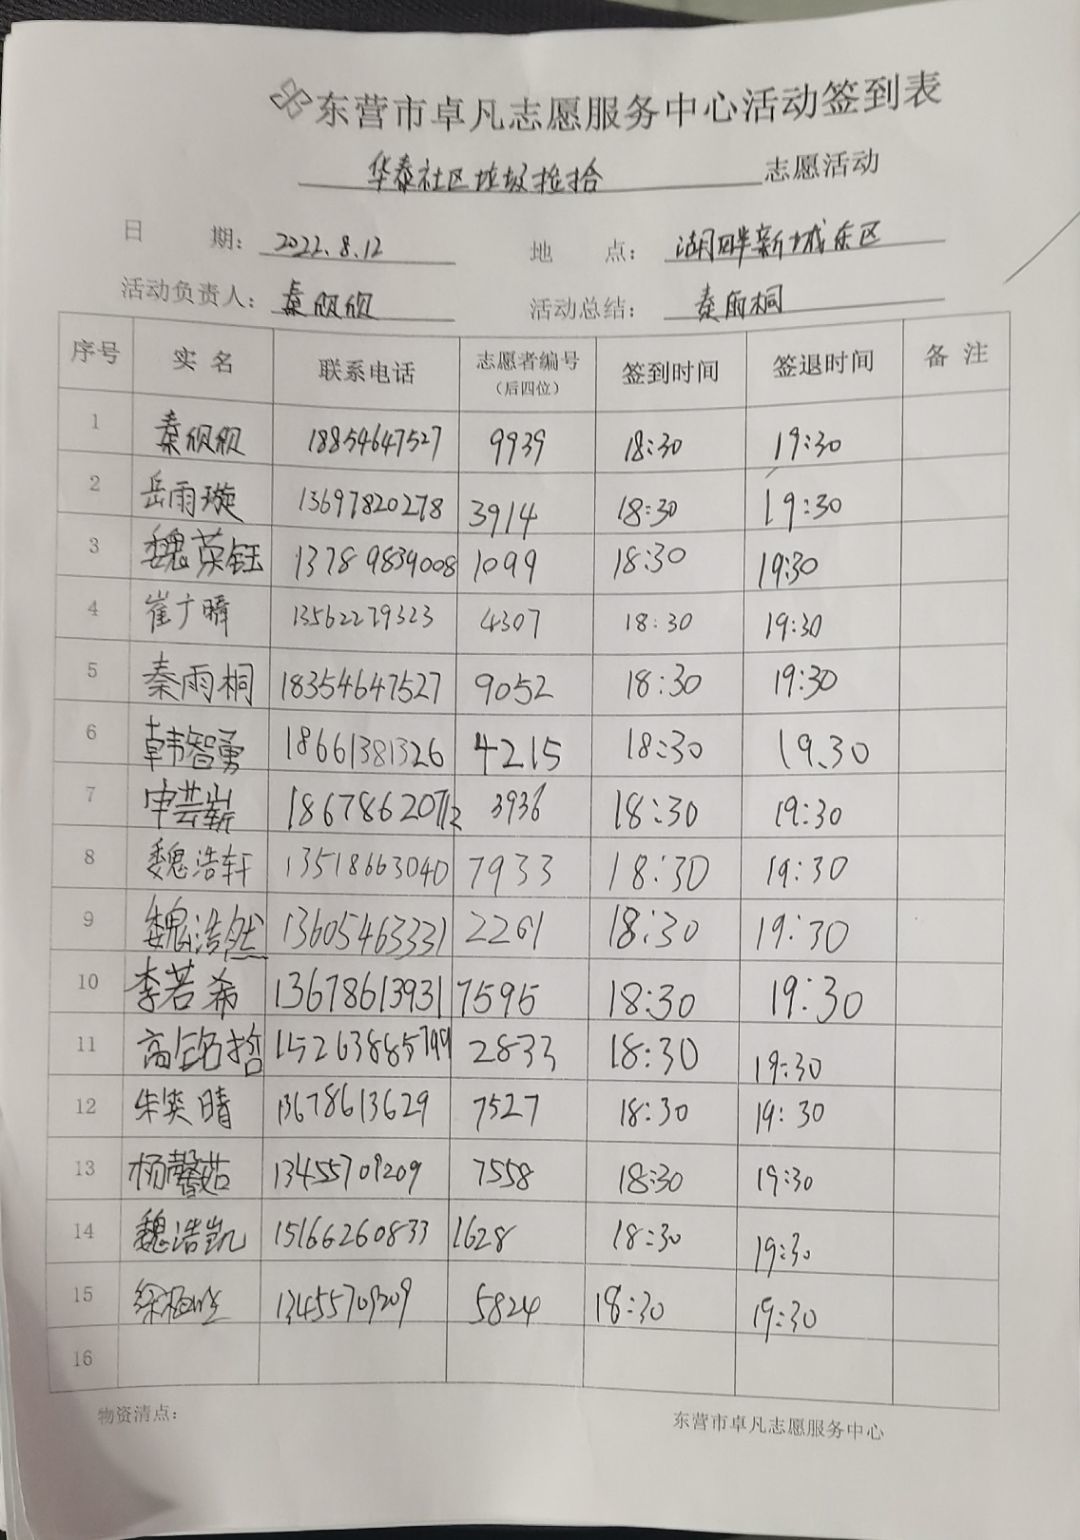 东营市卓凡志愿服务中心活动签到表
华泰社区垃圾捡拾 志愿活动
日 期: 2022.8.12 地 点: 湖畔新城东区
活动负责人: 秦 活动总结: 秦雨桐
序号 实名 联系电话 志愿者编号(后四位) 签到时间 签退时间 备注
1 秦 18854647527 9939 18:30 19:30
2 岳雨璇 13697820278 3914 18:30 19:30
3 魏荣钰 13789839008 1099 18:30 19:30
4 崔广晴 13562279323 4307 18:30 19:30
5 秦雨桐 18354647527 9052 18:30 19:30
6 韩智勇 18661381326 4215 18:30 19.30
7 申芸嶄 3936 18:30 19:30
8 魏浩轩 13518663040 7933 18:30 19:30
9 魏浩然 13605463331 2261 18:30 19:30
10 李若希 13678613931 7595 18:30 19:30
11 高铭哲 15263885799 2833 18:30 19:30
12 朱奕晴 13678613629 7527 18:30 19:30
13 杨馨茹 13455709209 7558 18:30 19:30
14 魏浩凯 15166260833 1628 18:30 19:30
15 13455709209 5824 18:30 19:30
16
物资清点: 东营市卓凡志愿服务中心